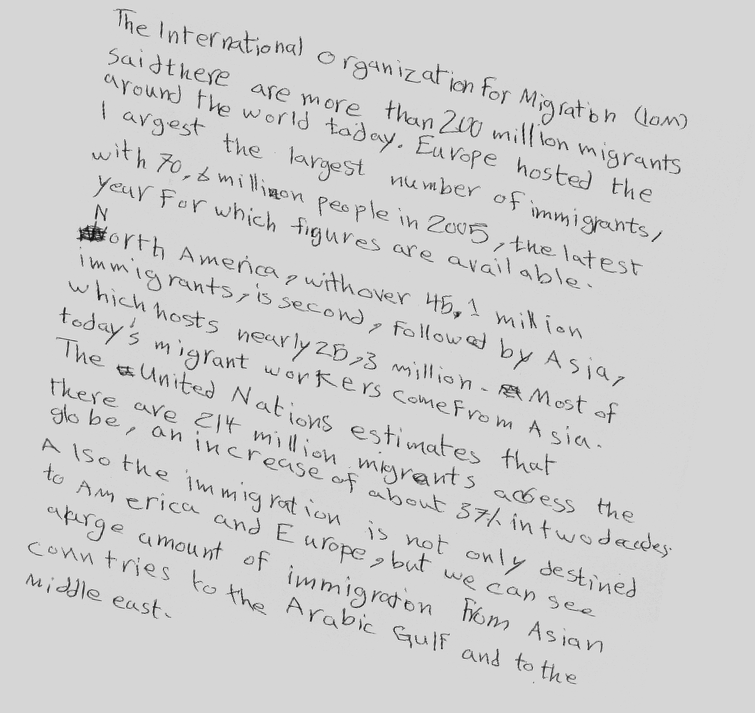 The International Organization for Migration (IOM)
said there are more than 200 million migrants
around the world today. Europe hosted the
largest the largest number of immigrants,
with 70,6 million people in 2005, the latest
year for which figures are available.
North America, with over 45,1 million
immigrants, is second, followed by Asia,
which hosts nearly 25,3 million. Most of
today's migrant workers come from Asia.
The United Nations estimates that
there are 214 million migrants acsess the
globe, an increase of about 37% in two decades.
Also the immigration is not only destined
to America and Europe, but we can see
a large amount of immigration from Asian
conntries to the Arabic Gulf and to the
Middle east.